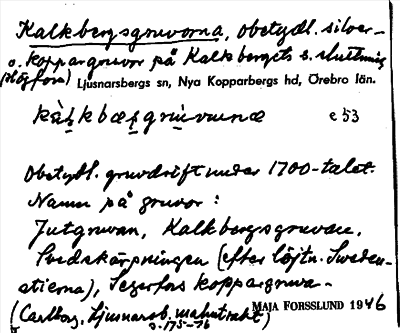 Kalkbergsgruvorna, obetydl. silver-
o. koppargruvor på Kalkbergets s. sluttning
(Högfors) Ljusnarsbergs sn, Nya Kopparbergs hd, Örebro län.
c 53
Obetydl. gruvdrift under 1700-talet.
Namn på gruvor:
Jutgruvan, Kalkbergsgruvan,
Svedskärpningen (efter löjtn. Sweden-
stierna), Segerfors koppargruva.
(Carlborg, Ljusnarsb. malmtrakt)
s. 175-76
MAJA FORSSLUND 1946